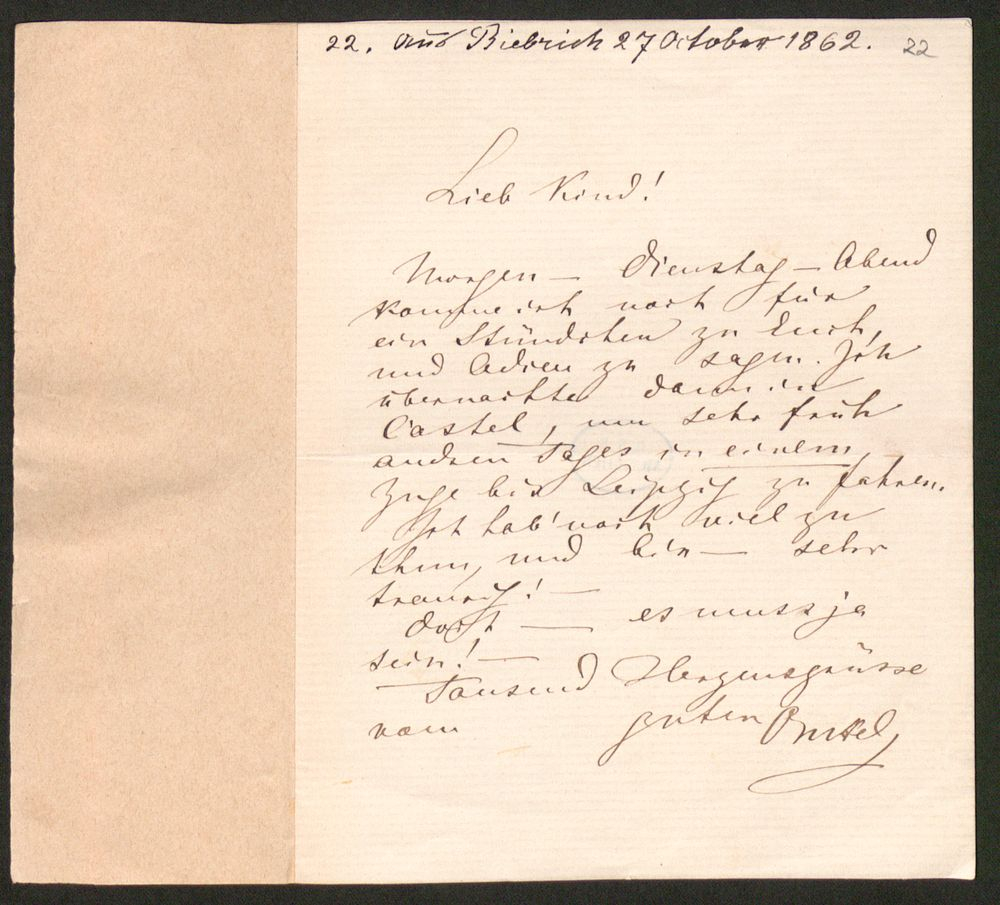 22. aus Biebrich 27 October 1862. 22
Lieb Kind!
Morgen — Dienstag — Abend
komme ich noch für
ein Stündchen zu Euch,
um Adieu zu sagen. Ich
übernachte dann in
Castel, um sehr früh
andren Tages in einem
Zuge bis Leipzig zu fahren.
Ich hab' noch viel zu
thun, und bin — sehr
traurig! —
Doch — es muss ja
sein! —
Tausend Herzensgrüsse
vom guten Onkel